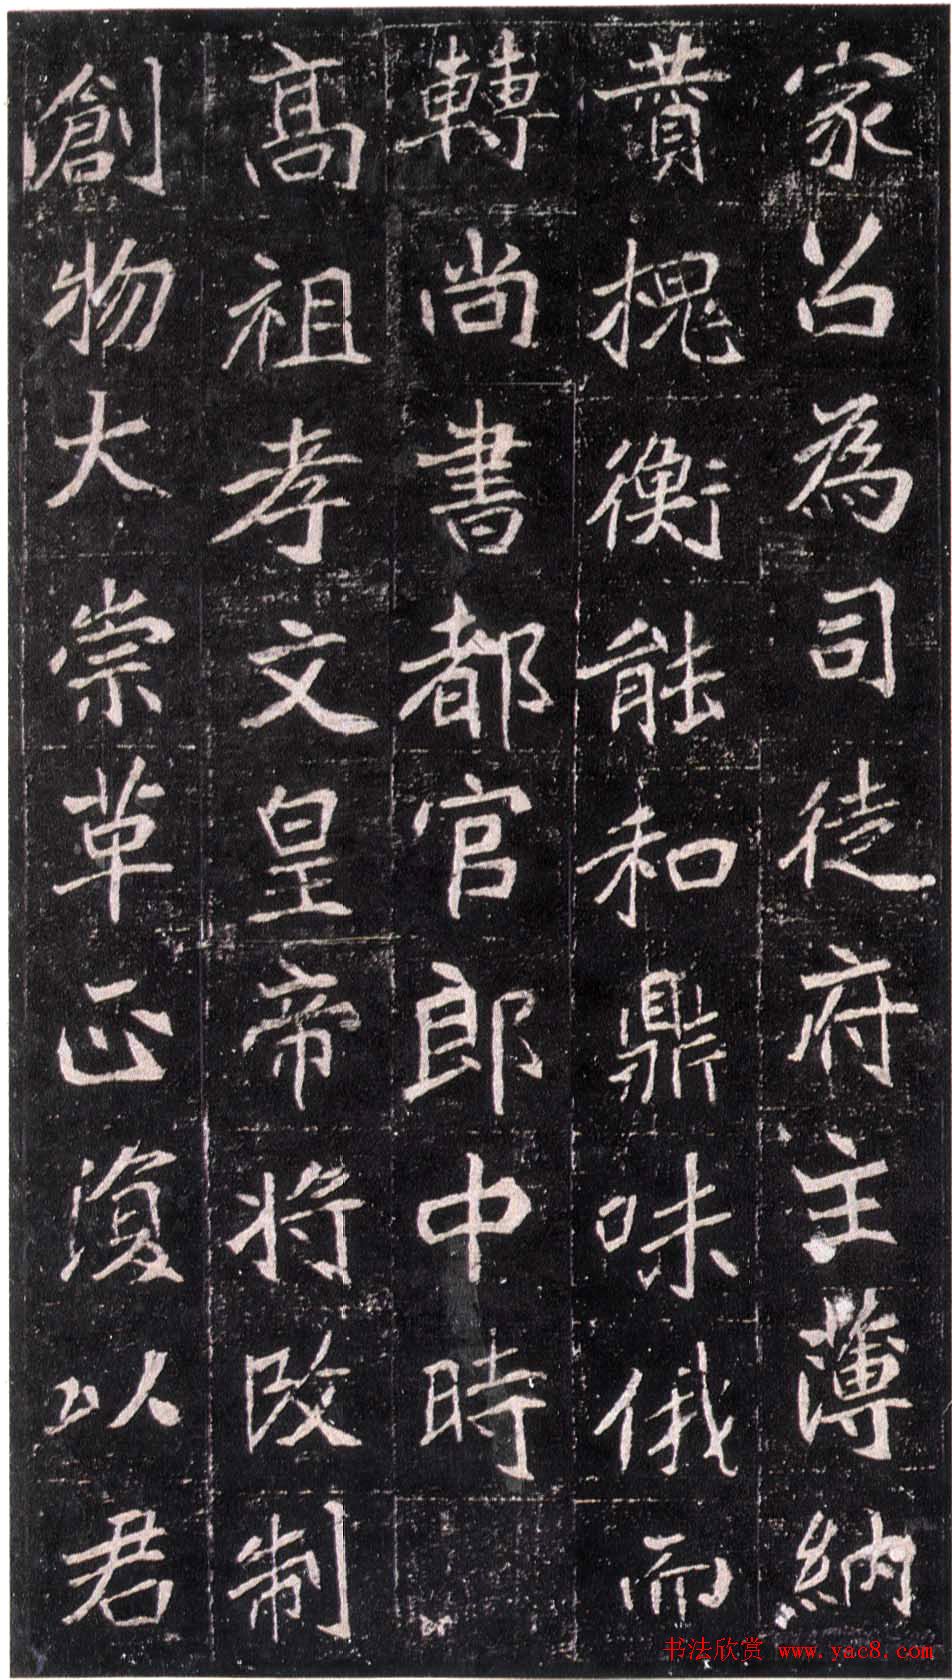 家召為司徒府主薄納
賛槐衡能和鼎味俄而
轉尚書都官郎中時
高祖孝文皇帝將改制
創物大崇革正復以君
书法欣赏 www.yac8.com